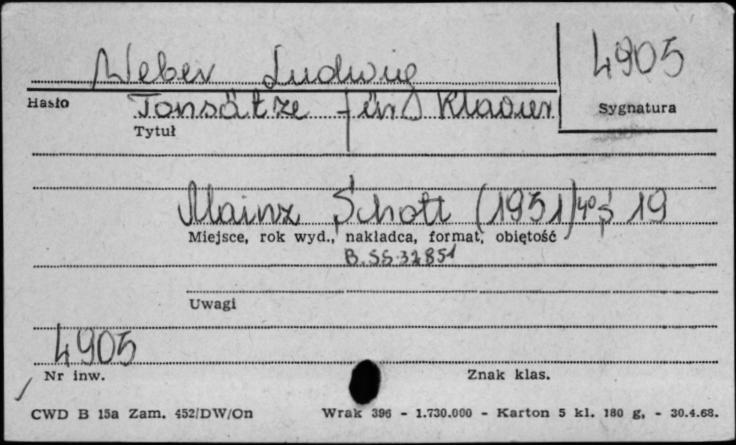 Weber Ludwig
4905
Hasło
Tonsätze fürs Klavier
Sygnatura
Tytuł
Mainz Schott (1951) 4° s 19
Miejsce, rok wyd., nakładca, format, objętość
B.SS.37851
Uwagi
4905
Nr inw.
Znak klas.
CWD B 15a Zam. 452/DW/On
Wrak 396 - 1.730.000 - Karton 5 kl. 180 g, - 30.4.68.